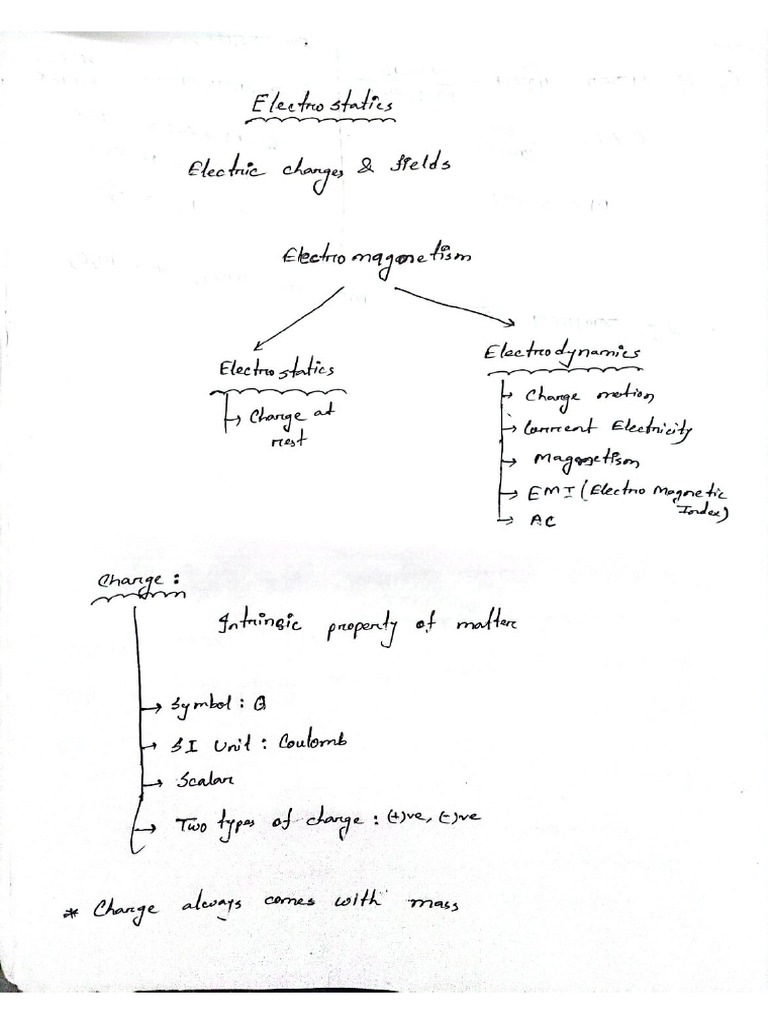 Electrostatics
Electric charges & fields
Electromagnetism
Electrostatics
Charge at
rest
Electrodynamics
Charge motion
Current Electricity
Magnetism
EMI (Electro Magnetic
Index)
AC
Charge:
Intrinsic property of matter
Symbol: Q
SI Unit: Coulomb
Scalar
Two types of charge: (+)ve, (-)ve
* Charge always comes with mass